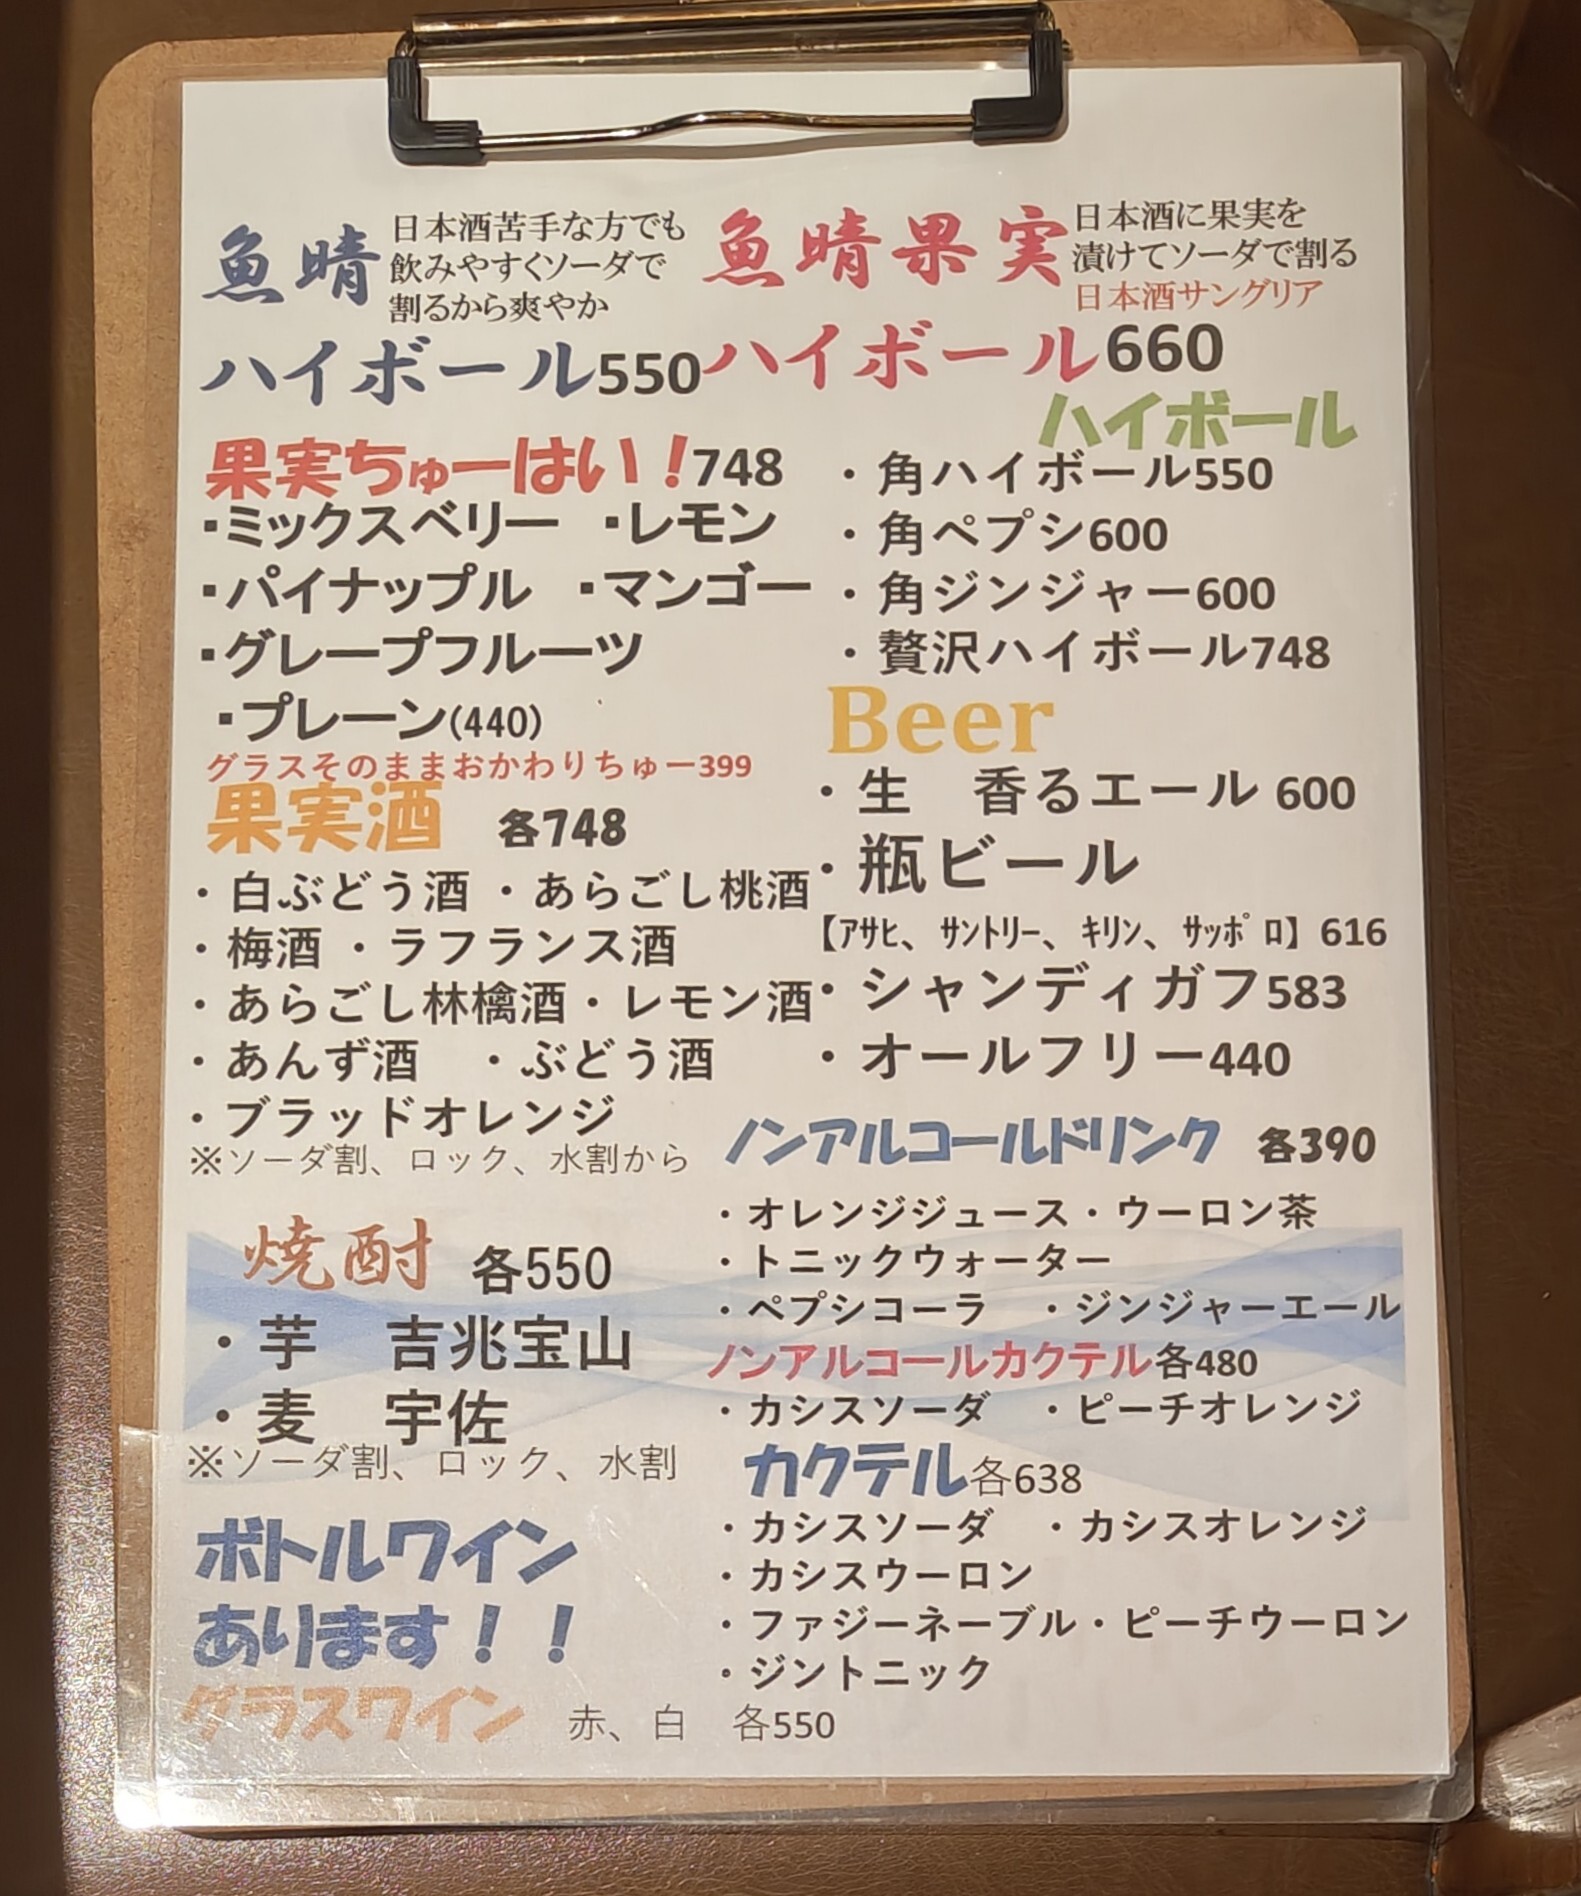 魚晴
日本酒苦手な方でも
飲みやすくソーダで
割るから爽やか
ハイボール550
魚晴果実
日本酒に果実を
漬けてソーダで割る
日本酒サングリア
ハイボール660
果実ちゅーはい！748
・ミックスベリー ・レモン
・パイナップル ・マンゴー
・グレープフルーツ
・プレーン(440)
グラスそのままおかわりちゅー399
果実酒 各748
・白ぶどう酒 ・あらごし桃酒
・梅酒 ・ラフランス酒
・あらごし林檎酒・レモン酒
・あんず酒 ・ぶどう酒
・ブラッドオレンジ
※ソーダ割、ロック、水割から
焼酎 各550
・芋 吉兆宝山
・麦 宇佐
※ソーダ割、ロック、水割
ボトルワイン
あります！！
グラスワイン 赤、白 各550
ハイボール
・角ハイボール550
・角ペプシ600
・角ジンジャー600
・贅沢ハイボール748
Beer
・生 香るエール 600
・瓶ビール
【ｱｻﾋ、ｻﾝﾄﾘｰ、ｷﾘﾝ、ｻｯﾎﾟﾛ】616
・シャンディガフ583
・オールフリー440
ノンアルコールドリンク 各390
・オレンジジュース・ウーロン茶
・トニックウォーター
・ペプシコーラ ・ジンジャーエール
ノンアルコールカクテル各480
・カシスソーダ ・ピーチオレンジ
カクテル各638
・カシスソーダ ・カシスオレンジ
・カシスウーロン
・ファジーネーブル・ピーチウーロン
・ジントニック